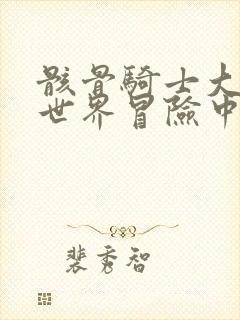 骸骨騎士大
世界冒險中
裴秀智